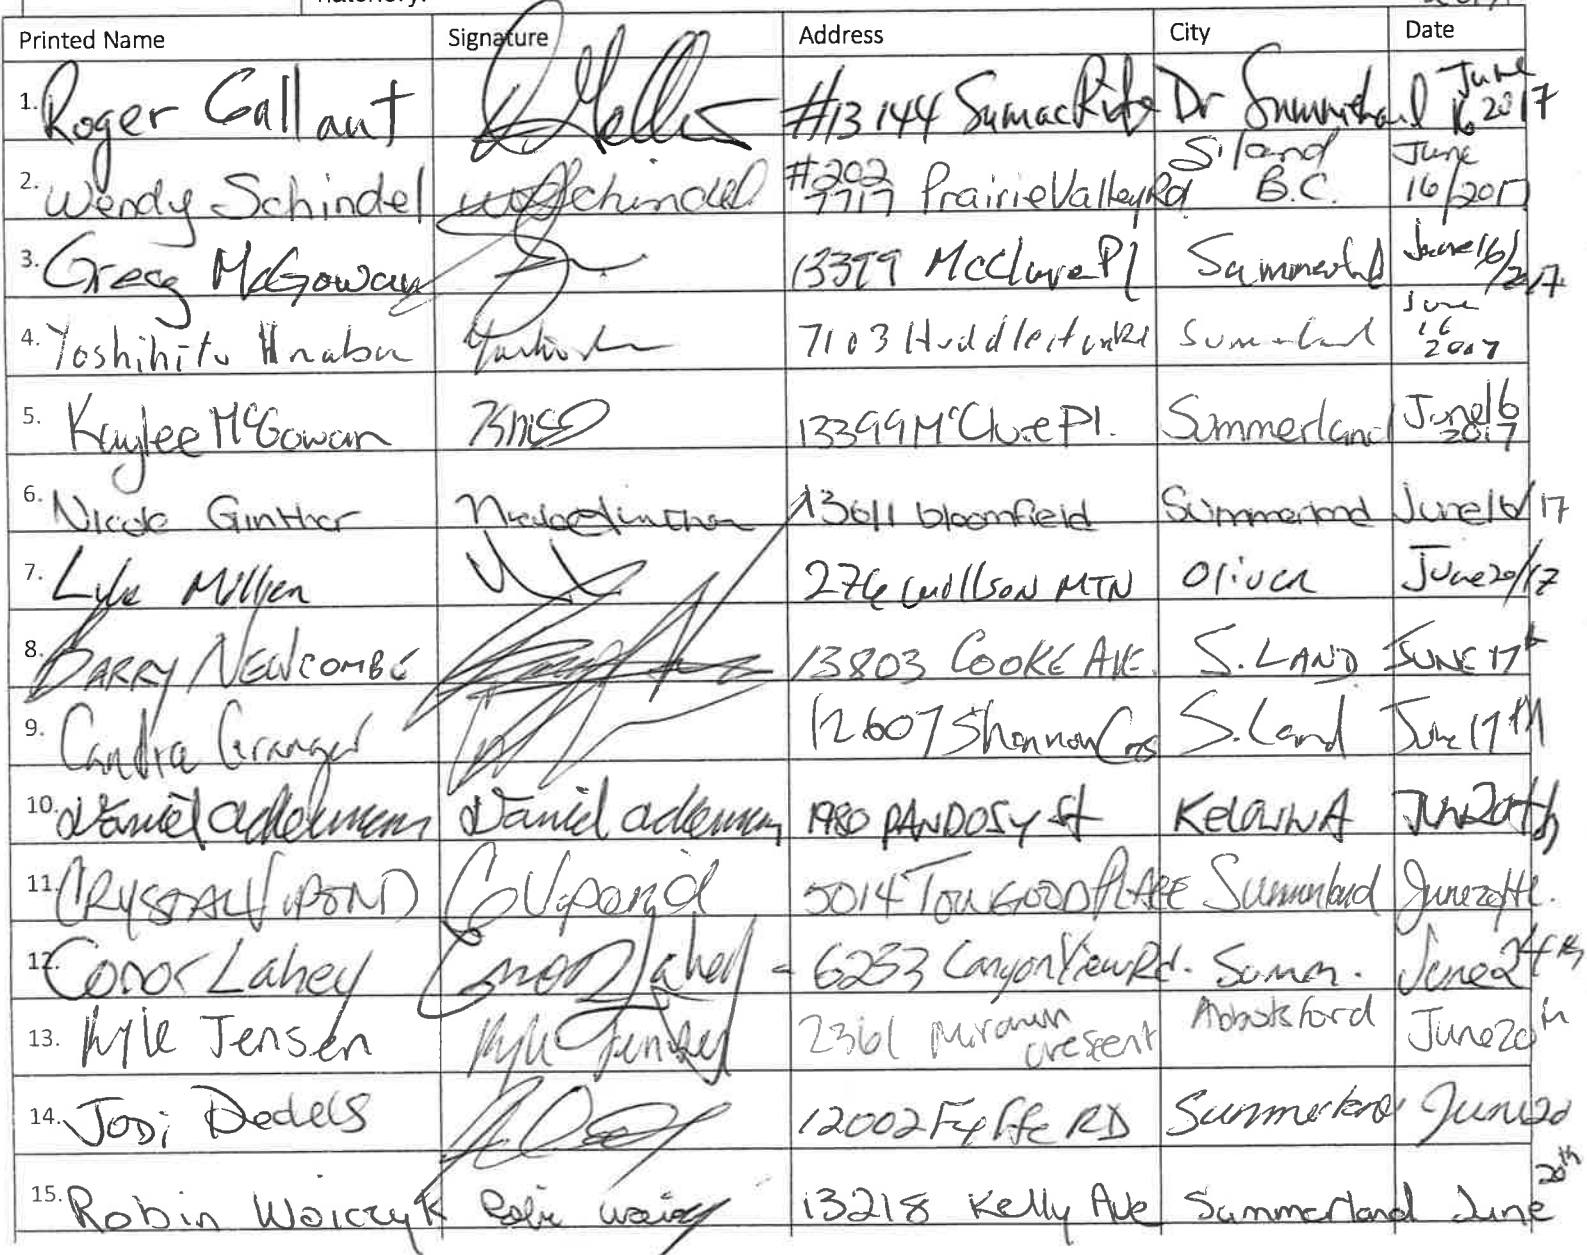 Printed Name Signature Address City Date
1. Roger Gallant #13 144 Sumac Ridge Dr Summerland June 16 2017
2. Wendy Schindel W Schindel #202 7717 Prairie Valley Rd S'land B.C. June 16/2017
3. Gregg McGowan 13399 McClure Pl Summerland June 16/2017
4. Yoshihito 7103 Huddleston Rd Summerland June 16 2017
5. Kaylee McGowan 13399 McClure Pl. Summerland June 16 2017
6. Nicole Ginther Nicole Ginther 13611 bloomfield Summerland June 16/17
7. Lyle 276 Willson MTN Oliver June 20/17
8. BARRY NEWCOMBE 13803 COOKE AVE. S.LAND JUNE 17th
9. Candra Granger 12607 Shannon Cres S.Land June 17th
10. Daniel Daniel 1980 PANDOSY st KELOWNA June 20th
11. CRYSTAL V. POND C V. pond 5014 Summerland June 20th.
12. Conor Lahey Conor Lahey - 6233 Canyon View Rd. Summ. June 24th
13. Kyle Jensen Kyle Jensen 2361 crescent Abbotsford June 20th
14. Jodi Dedels 12002 Fyffe RD Summerland June 20
15. Robin Woiczyk Robin 13218 Kelly Ave Summerland June 20th